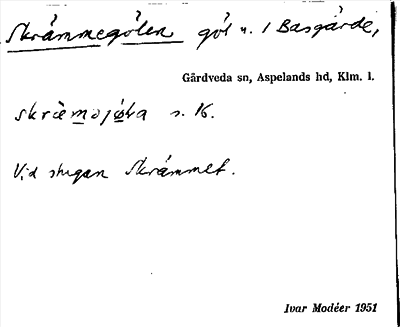 Skrämmegölen göl n. 1 Basgärde,
Gårdveda sn, Aspelands hd, Klm. l.
s. 16.
Vid stugan Skrämmet.
Ivar Modéer 1951